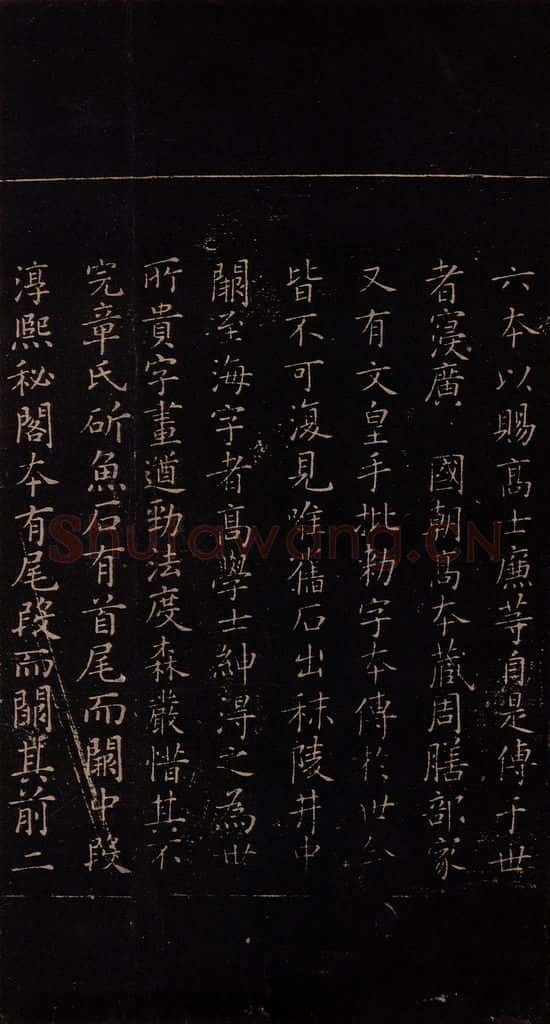 六本以賜高士廉等自是傳于世
者寖廣 國朝高本藏周膳部家
又有文皇手批勑字本傳於世今
皆不可復見唯舊石出秣陵井中
闕至海字者高學士紳得之為世
所貴字畫遒勁法度森嚴惜其不
完章氏斫魚石有首尾而闕中段
淳熙秘閣本有尾段而闕其前二
Shufawang.CN